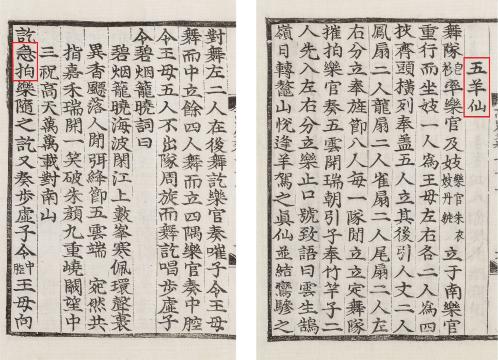 五羊仙
舞隊皂衫率樂官及妓樂官朱衣妓丹粧立于南樂官
重行而坐妓一人爲王母左右各二人爲四
挾齊頭橫列奉盖五人立其後引人丈二人
鳳扇二人龍扇二人雀扇二人尾扇二人左
右分立奉旌節八人每一隊間立立定舞隊
摧拍樂官奏五雲開瑞朝引子奉竹竿子二
人先入左右分立樂止口號致語曰雲生鵠
嶺日轉鼇山恱逢羊駕之眞仙並結鸞驂之
對舞左二人在後舞訖樂官奏嗺子令王母
舞而中立餘四人舞而立四隅樂官奏中腔
令王母五人不出隊周旋而舞訖唱步虛子
令碧烟籠曉詞曰
碧烟籠曉海波閑江上數峯寒佩環聲裏
異香飄落人間弭絳節五雲端 宛然共
指嘉禾瑞開一笑破朱顔九重嶢闕望中
三祝高天萬萬載對南山
訖急拍樂隨之訖又奏步虛子令中腔王母向